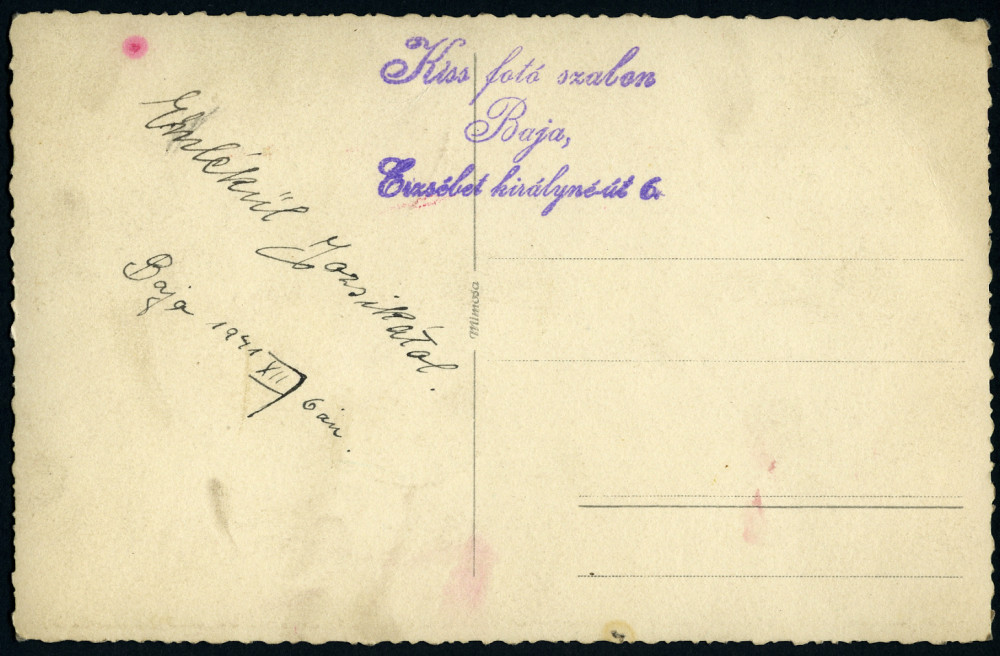 Kiss fotó szalon
Baja,
Erzsébet királyné-út 6.
Emlékül Jozsikától.
Baja 1941 XII 6án.
Mimosa